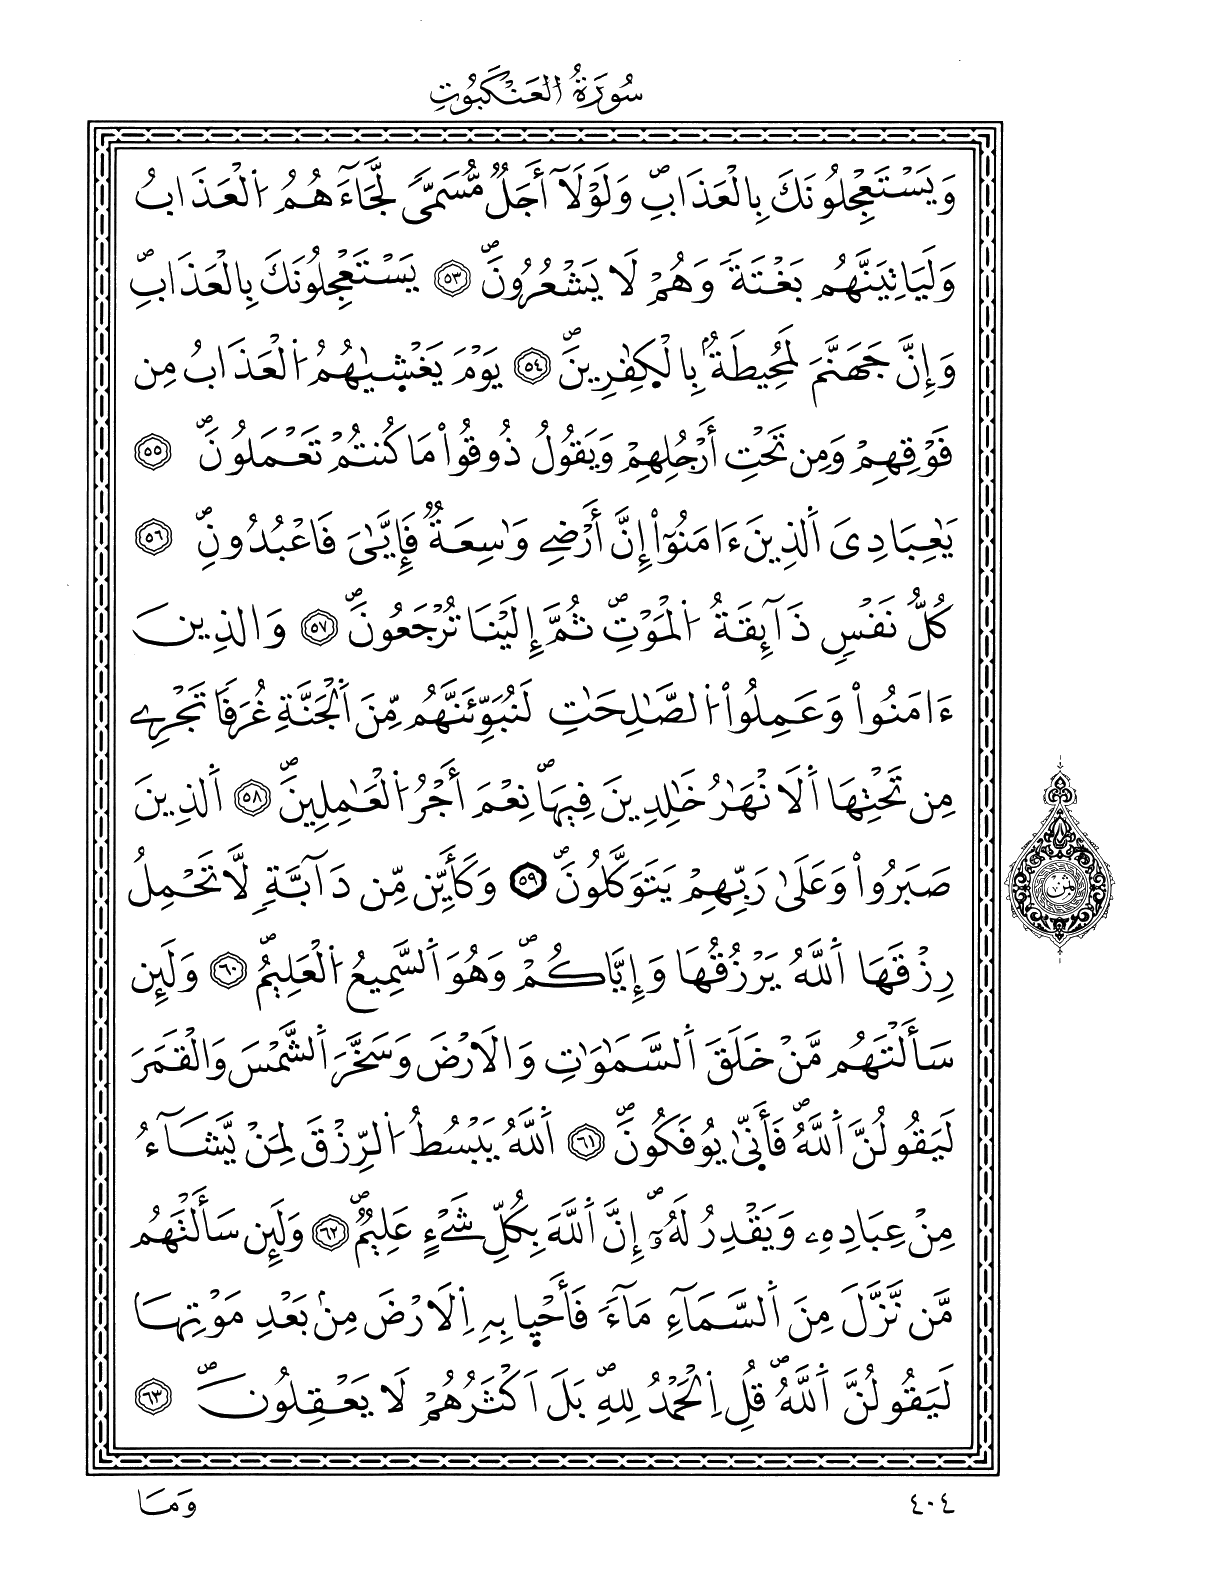 سُورَةُ الْعَنكَبُوتِ
وَيَسْتَعْجِلُونَكَ بِالْعَذَابِۖ وَلَوْلَآ أَجَلٞ مُّسَمّيٗ لَّجَآءَهُمُ اُ۬لْعَذَابُ
وَلَيَاتِيَنَّهُم بَغْتَةٗ وَهُمْ لَا يَشْعُرُونَۖ ٥٣ يَسْتَعْجِلُونَكَ بِالْعَذَابِۖ
وَإِنَّ جَهَنَّمَ لَمُحِيطَةُۢ بِالْكٰفِرِينَۖ ٥٤ يَوْمَ يَغْشۭيٰهُمُ اُ۬لْعَذَابُ مِن
فَوْقِهِمْ وَمِن تَحْتِ أَرْجُلِهِمْ وَيَقُولُ ذُوقُواْ مَا كُنتُمْ تَعْمَلُونَۖ ٥٥
يَٰعِبَادِيَ اَ۬لذِينَ ءَامَنُوٓاْ إِنَّ أَرْضِے وَٰسِعَةٞ فَإِيَّٰيَ فَاعْبُدُونِۖ ٥٦
كُلُّ نَفْسٖ ذَآئِقَةُ اُ۬لْمَوْتِۖ ثُمَّ إِلَيْنَا تُرْجَعُونَۖ ٥٧ وَالذِينَ
ءَامَنُواْ وَعَمِلُواْ اُ۬لصَّٰلِحَٰتِ لَنُبَوِّئَنَّهُم مِّنَ اَ۬لْجَنَّةِ غُرَفاٗ تَجْرِے
مِن تَحْتِهَا اَ۬لَانْهَٰرُ خَٰلِدِينَ فِيهَاۖ نِعْمَ أَجْرُ اُ۬لْعَٰمِلِينَۖ ٥٨ اَ۬لذِينَ
صَبَرُواْ وَعَلَىٰ رَبِّهِمْ يَتَوَكَّلُونَۖ ٥٩ وَكَأَيِّن مِّن دَآبَّةٖ لَّا تَحْمِلُ
رِزْقَهَا اَ۬للَّهُ يَرْزُقُهَا وَإِيَّاكُمْۖ وَهُوَ اَ۬لسَّمِيعُ اُ۬لْعَلِيمُۖ ٦٠ وَلَئِن
سَأَلْتَهُم مَّنْ خَلَقَ اَ۬لسَّمَٰوَٰتِ وَالَارْضَ وَسَخَّرَ اَ۬لشَّمْسَ وَالْقَمَرَ
لَيَقُولُنَّ اَ۬للَّهُۖ فَأَنّ۪ىٰ يُوفَكُونَۖ ٦١ اَ۬للَّهُ يَبْسُطُ اُ۬لرِّزْقَ لِمَنْ يَّشَآءُ
مِنْ عِبَادِهِۦ وَيَقْدِرُ لَهُۥٓۖ إِنَّ اَ۬للَّهَ بِكُلِّ شَےْءٍ عَلِيمٞۖ ٦٢ وَلَئِن سَأَلْتَهُم
مَّن نَّزَّلَ مِنَ اَ۬لسَّمَآءِ مَآءٗ فَأَحْي۪ا بِهِ اِ۬لَارْضَ مِنۢ بَعْدِ مَوْتِهَا
لَيَقُولُنَّ اَ۬للَّهُۖ قُلِ اِ۬لْحَمْدُ لِلهِۖ بَلَ اَكْثَرُهُمْ لَا يَعْقِلُونَۖ ٦٣
ثمن
٤٠٤
وَمَا